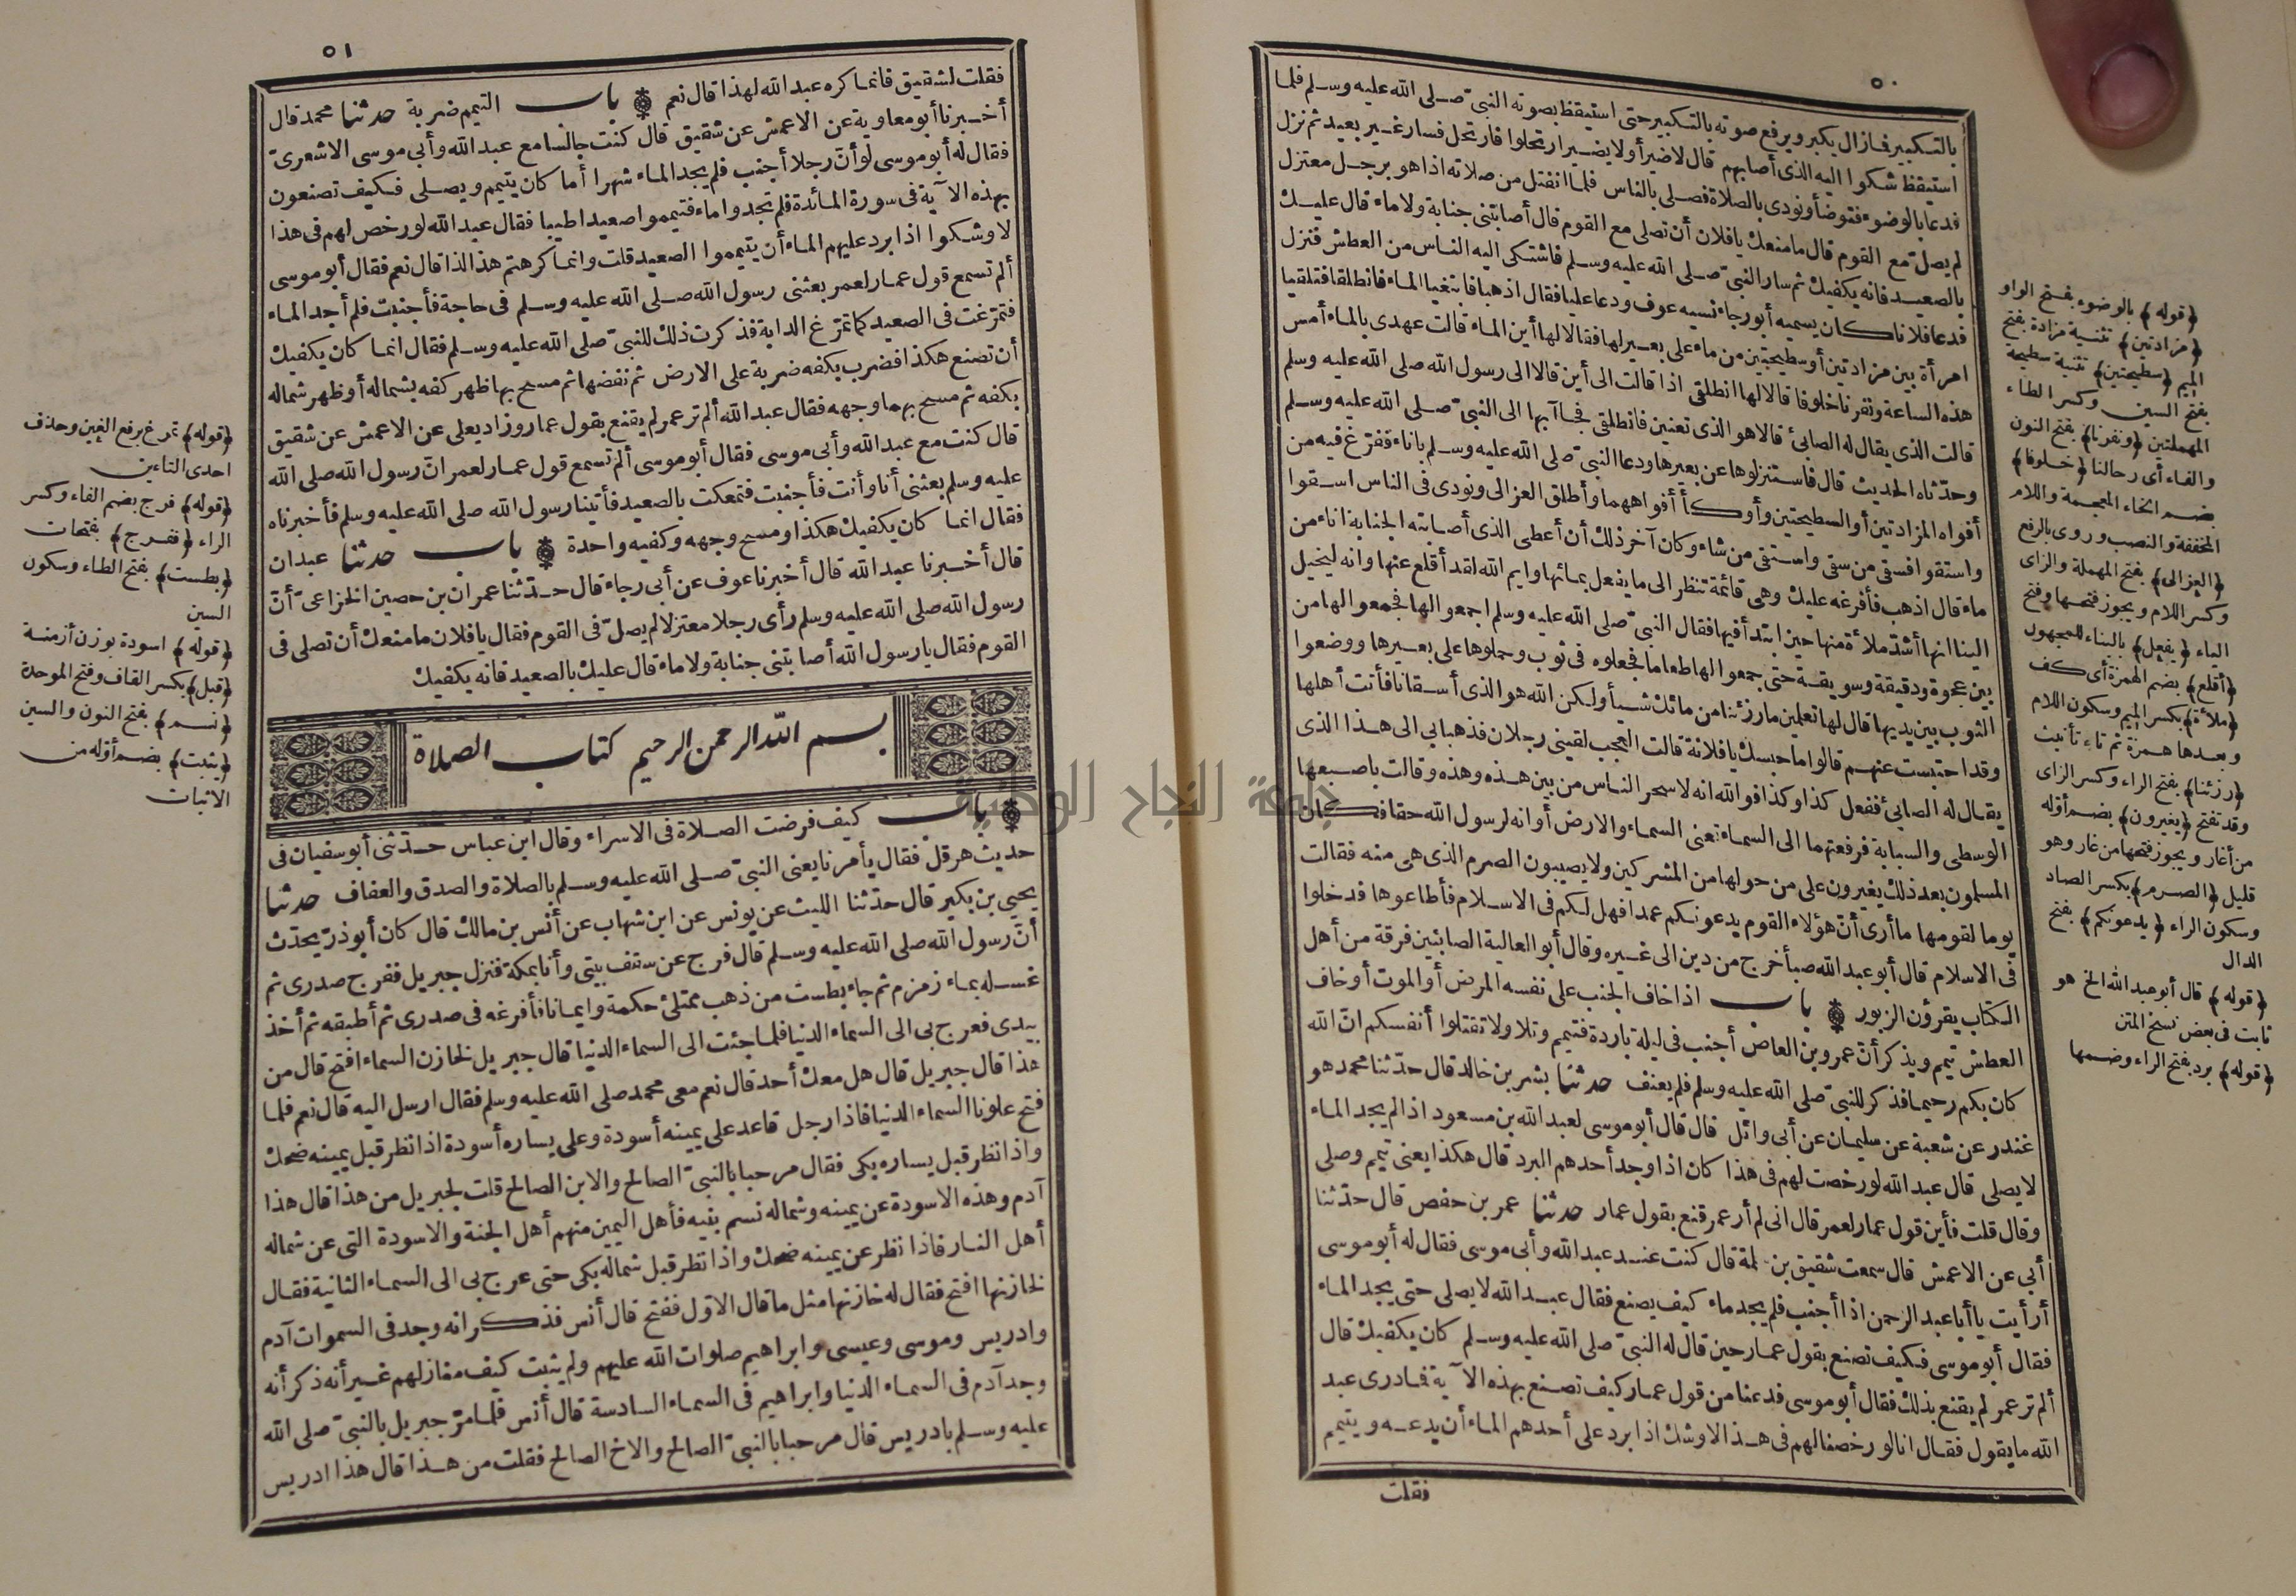 ٥٠
بالتكبير فما زال يكبر ويرفع صوته بالتكبير حتى استيقظ بصوته النبي صلى الله عليه وسلم فلما
استيقظ شكوا اليه الذى أصابهم قال لا ضير أو لا يضير ارتحلوا فارتحل فسار غير بعيد ثم نزل
فدعا بالوضوء فتوضأ ونودى بالصلاة فصلى بالناس فلما انفتل من صلاته اذا هو برجل معتزل
لم يصل مع القوم قال ما منعك يا فلان أن تصلى مع القوم قال أصابتنى جنابة ولا ماء قال عليك
بالصعيد فانه يكفيك ثم سار النبي صلى الله عليه وسلم فاشتكى اليه الناس من العطش فنزل
فدعا فلانا كان يسميه أبو رجاء نسيه عوف ودعا عليا فقال اذهبا فابتغيا الماء فانطلقا فتلقيا
امرأة بين مزادتين أو سطيحتين من ماء على بعير لها فقالا لها أين الماء قالت عهدى بالماء أمس
هذه الساعة ونفرنا خلوفا قالا لها انطلقى اذا قالت الى أين قالا الى رسول الله صلى الله عليه وسلم
قالت الذى يقال له الصابئ قالا هو الذى تعنين فانطلقى فجاآ بها الى النبي صلى الله عليه وسلم
وحدثاه الحديث قال فاستنزلوها عن بعيرها ودعا النبي صلى الله عليه وسلم باناء ففرغ فيه من
أفواه المزادتين أو السطيحتين وأوكأ أفواههما وأطلق العزالى ونودى فى الناس اسقوا
واستقوا فسقى من سقى واستقى من شاء وكان آخر ذلك أن أعطى الذى أصابته الجنابة اناء من
ماء قال اذهب فأفرغه عليك وهى قائمة تنظر الى ما يفعل بمائها وايم الله لقد أقلع عنها وانه ليخيل
الينا انها أشد ملأة منها حين ابتدأ فيها فقال النبي صلى الله عليه وسلم اجمعوا لها فجمعوا لها من
بين عجوة ودقيقة وسويقة حتى جمعوا لها طعاما فجعلوه فى ثوب وحملوها على بعيرها ووضعوا
الثوب بين يديها قال لها تعلمين ما رزئنا من مائك شيأ ولكن الله هو الذى أسقانا فأتت أهلها
وقد احتبست عنهم قالوا ما حبسك يا فلانة قالت العجب لقينى رجلان فذهبا بى الى هذا الذى
يقال له الصابئ ففعل كذا وكذا فوالله انه لاسحر الناس من بين هذه وهذه وقالت باصبعها
الوسطى والسبابة فرفعتهما الى السماء تعنى السماء والارض أو انه لرسول الله حقا فكان
المسلمون بعد ذلك يغيرون على من حولها من المشركين ولا يصيبون الصرم الذى هى منه فقالت
يوما لقومها ما أرى أن هؤلاء القوم يدعونكم عمدا فهل لكم فى الاسلام فأطاعوها فدخلوا
فى الاسلام قال أبو عبد الله صبأ خرج من دين الى غيره وقال أبو العالية الصابئين فرقة من أهل
الكتاب يقرؤن الزبور باب اذا خاف الجنب على نفسه المرض أو الموت أو خاف
العطش تيمم ويذكر أن عمرو بن العاص أجنب فى ليلة باردة فتيمم وتلا ولا تقتلوا أنفسكم ان الله
كان بكم رحيما فذكر للنبي صلى الله عليه وسلم فلم يعنف حدثنا بشر بن خالد قال حدثنا محمد هو
غندر عن شعبة عن سليمان عن أبى وائل قال قال أبو موسى لعبد الله بن مسعود اذا لم يجد الماء
لا يصلى قال عبد الله لو رخصت لهم فى هذا كان اذا وجد أحدهم البرد قال هكذا يعنى تيمم وصلى
وقال قلت فأين قول عمار لعمر قال انى لم أر عمر قنع بقول عمار حدثنا عمر بن حفص قال حدثنا
أبى عن الاعمش قال سمعت شقيق بن سلمة قال كنت عند عبد الله وأبى موسى فقال له أبو موسى
أرأيت يا أبا عبد الرحمن اذا أجنب فلم يجد ماء كيف يصنع فقال عبد الله لا يصلى حتى يجد الماء
فقال أبو موسى فكيف تصنع بقول عمار حين قال له النبي صلى الله عليه وسلم كان يكفيك قال
ألم تر عمر لم يقنع بذلك فقال أبو موسى فدعنا من قول عمار كيف تصنع بهذه الآية فما درى عبد
الله ما يقول فقال انا لو رخصنا لهم فى هذا لاوشك اذا برد على أحدهم الماء أن يدعه ويتيمم
فقلت
﴿قوله﴾ بالوضوء بفتح الواو
﴿مزادتين﴾ تثنية مزادة بفتح
الميم ﴿سطيحتين﴾ تثنية سطيحة
بفتح السين وكسر الطاء
المهملتين ﴿ونفرنا﴾ بفتح النون
والفاء أى رحالنا ﴿خلوفا﴾
بضم الخاء المعجمة واللام
المخففة والنصب وروى بالرفع
﴿العزالى﴾ بفتح المهملة والزاى
وكسر اللام ويجوز فتحها وفتح
الياء ﴿يفعل﴾ بالبناء للمجهول
﴿أقلع﴾ بضم الهمزة أى كف
﴿ملأة﴾ بكسر الميم وسكون اللام
وبعدها همزة ثم تاء تأنيث
﴿رزئنا﴾ بفتح الراء وكسر الزاى
وقد تفتح ﴿يغيرون﴾ بضم أوله
من أغار ويجوز فتحها من غار وهو
قليل ﴿الصرم﴾ بكسر الصاد
وسكون الراء ﴿يدعونكم﴾ بفتح
الدال
﴿قوله﴾ قال أبو عبد الله الخ هو
ثابت فى بعض نسخ المتن
﴿قوله﴾ برد بفتح الراء وضمها
جامعة النجاح الوطنية
٥١
فقلت لشقيق فانما كره عبد الله لهذا قال نعم باب التيمم ضربة حدثنا محمد قال
أخبرنا أبو معاوية عن الاعمش عن شقيق قال كنت جالسا مع عبد الله وأبى موسى الاشعرى
فقال له أبو موسى لو أن رجلا أجنب فلم يجد الماء شهرا أما كان يتيمم ويصلى فكيف تصنعون
بهذه الآية فى سورة المائدة فلم تجدوا ماء فتيمموا صعيدا طيبا فقال عبد الله لو رخص لهم فى هذا
لاوشكوا اذا برد عليهم الماء أن يتيمموا الصعيد قلت وانما كرهتم هذا لذا قال نعم فقال أبو موسى
ألم تسمع قول عمار لعمر بعثنى رسول الله صلى الله عليه وسلم فى حاجة فأجنبت فلم أجد الماء
فتمرغت فى الصعيد كما تمرغ الدابة فذكرت ذلك للنبي صلى الله عليه وسلم فقال انما كان يكفيك
أن تصنع هكذا فضرب بكفه ضربة على الارض ثم نفضها ثم مسح بها ظهر كفه بشماله أو ظهر شماله
بكفه ثم مسح بهما وجهه فقال عبد الله ألم تر عمر لم يقنع بقول عمار وزاد يعلى عن الاعمش عن شقيق
قال كنت مع عبد الله وأبى موسى فقال أبو موسى ألم تسمع قول عمار لعمر ان رسول الله صلى الله
عليه وسلم بعثنى أنا وأنت فأجنبت فتمعكت بالصعيد فأتينا رسول الله صلى الله عليه وسلم فأخبرناه
فقال انما كان يكفيك هكذا ومسح وجهه وكفيه واحدة باب حدثنا عبدان
قال أخبرنا عبد الله قال أخبرنا عوف عن أبى رجاء قال حدثنا عمران بن حصين الخزاعى أن
رسول الله صلى الله عليه وسلم رأى رجلا معتزلا لم يصل فى القوم فقال يا فلان ما منعك أن تصلى فى
القوم فقال يا رسول الله أصابتنى جنابة ولا ماء قال عليك بالصعيد فانه يكفيك
بسم الله الرحمن الرحيم كتاب الصلاة
باب كيف فرضت الصلاة فى الاسراء وقال ابن عباس حدثنى أبو سفيان فى
حديث هرقل فقال يأمرنا يعنى النبي صلى الله عليه وسلم بالصلاة والصدق والعفاف حدثنا
يحيى بن بكير قال حدثنا الليث عن يونس عن ابن شهاب عن أنس بن مالك قال كان أبو ذر يحدث
أن رسول الله صلى الله عليه وسلم قال فرج عن سقف بيتى وأنا بمكة فنزل جبريل ففرج صدرى ثم
غسله بماء زمزم ثم جاء بطست من ذهب ممتلئ حكمة وايمانا فأفرغه فى صدرى ثم أطبقه ثم أخذ
بيدى فعرج بى الى السماء الدنيا فلما جئت الى السماء الدنيا قال جبريل لخازن السماء افتح قال من
هذا قال جبريل قال هل معك أحد قال نعم معى محمد صلى الله عليه وسلم فقال ارسل اليه قال نعم فلما
فتح علونا السماء الدنيا فاذا رجل قاعد على يمينه أسودة وعلى يساره أسودة اذا نظر قبل يمينه ضحك
واذا نظر قبل يساره بكى فقال مرحبا بالنبي الصالح والابن الصالح قلت لجبريل من هذا قال هذا
آدم وهذه الاسودة عن يمينه وشماله نسم بنيه فأهل اليمين منهم أهل الجنة والاسودة التى عن شماله
أهل النار فاذا نظر عن يمينه ضحك واذا نظر قبل شماله بكى حتى عرج بى الى السماء الثانية فقال
لخازنها افتح فقال له خازنها مثل ما قال الاول ففتح قال أنس فذكر انه وجد فى السموات آدم
وادريس وموسى وعيسى وابراهيم صلوات الله عليهم ولم يثبت كيف منازلهم غير أنه ذكر أنه
وجد آدم فى السماء الدنيا وابراهيم فى السماء السادسة قال أنس فلما مر جبريل بالنبي صلى الله
عليه وسلم بادريس قال مرحبا بالنبي الصالح والاخ الصالح فقلت من هذا قال هذا ادريس
﴿قوله﴾ تمرغ برفع الغين وحذف
احدى التاءين
﴿قوله﴾ فرج بضم الفاء وكسر
الراء ﴿ففرج﴾ بفتحات
﴿بطست﴾ بفتح الطاء وسكون
السين
﴿قوله﴾ اسودة بوزن أزمنة
﴿قبل﴾ بكسر القاف وفتح الموحدة
﴿نسم﴾ بفتح النون والسين
﴿يثبت﴾ بضم أوله من
الاثبات